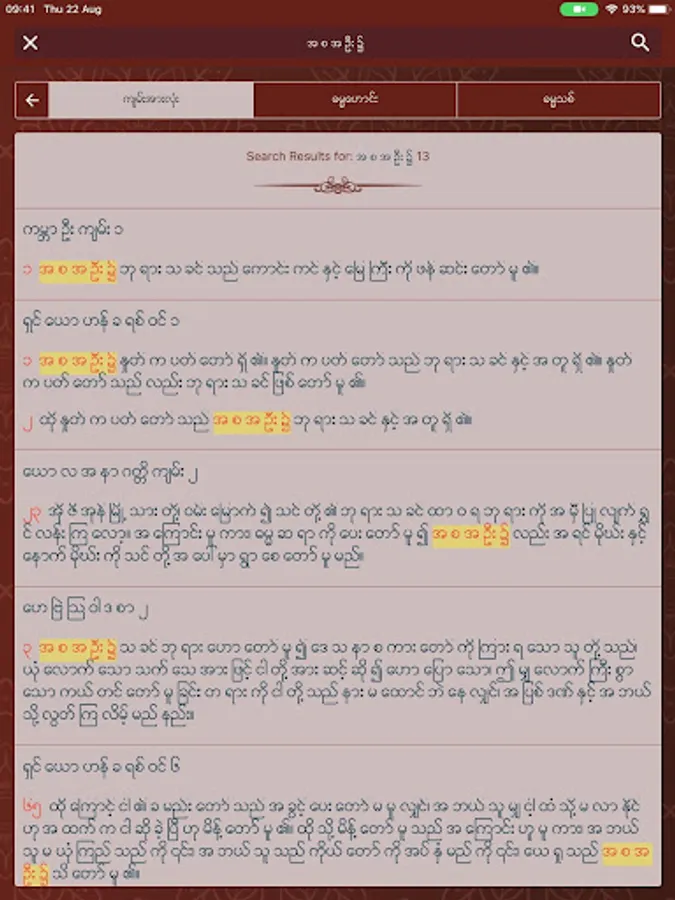 09:41 Thu 22 Aug
93%
အ စ အ ဦး ၌
ကျမ်းအားလုံး
ဓမ္မဟောင်း
ဓမ္မသစ်
Search Results for: အ စ အ ဦး ၌ 13
ကမ္ဘာ ဦး ကျမ်း ၁
၁ အ စ အ ဦး ၌ ဘု ရား သ ခင် သည် ကောင်း ကင် နှင့် မြေ ကြီး ကို ဖန် ဆင်း တော် မူ ၏။
ရှင် ယော ဟန် ခ ရစ် ဝင် ၁
၁ အ စ အ ဦး ၌ နှုတ် က ပတ် တော် ရှိ ၏။ နှုတ် က ပတ် တော် သည် ဘု ရား သ ခင် နှင့် အ တူ ရှိ ၏။ နှုတ်
က ပတ် တော် သည် လည်း ဘု ရား သ ခင် ဖြစ် တော် မူ ၏။
၂ ထို နှုတ် က ပတ် တော် သည် အ စ အ ဦး ၌ ဘု ရား သ ခင် နှင့် အ တူ ရှိ ၏။
ယော လ အ နာ ဂတ္တိ ကျမ်း ၂
၂၃ အို ဇိ အုန် မြို့ သား တို့၊ ဝမ်း မြောက် ၍ သင် တို့ ၏ ဘု ရား သ ခင် ထာ ဝ ရ ဘု ရား ကို အ မှီ ပြု လျက် ရွှ
င် လန်း ကြ လော့။ အ ကြောင်း မူ ကား၊ ဓမ္မ ဆ ရာ ကို ပေး တော် မူ ၍ အ စ အ ဦး ၌ လည်း အ ရင် မိုဃ်း နှင့်
နောက် မိုဃ်း ကို သင် တို့ အ ပေါ် မှာ ရွာ စေ တော် မူ မည်။
ဟေ ဗြဲ ဩ ဝါ ဒ စာ ၂
၃ အ စ အ ဦး ၌ သ ခင် ဘု ရား ဟော တော် မူ ၍ ဒေ သ နာ စ ကား တော် ကို ကြား ရ သော သူ တို့ သည်၊
ယုံ လောက် သော သက် သေ အား ဖြင့် ငါ တို့ အား ဆင့် ဆို ၍ ဟော ပြော သော၊ ဤ မျှ လောက် ကြီး စွာ
သော ကယ် တင် တော် မူ ခြင်း တ ရား ကို ငါ တို့ သည် နား မ ထောင် ဘဲ နေ လျှင်၊ အ ပြစ် ဒဏ် နှင့် အ ဘယ်
သို့ လွတ် ကြ လိမ့် မည် နည်း။
ရှင် ယော ဟန် ခ ရစ် ဝင် ၆
၆၅ ထို ကြောင့် ငါ ၏ ခ မည်း တော် သည် အ ခွင့် ပေး တော် မ မူ လျှင်၊ အ ဘယ် သူ မျှ ငါ့ ထံ သို့ မ လာ နိုင်
ဟု အ ထက် က ငါ ဆို ခဲ့ ပြီ ဟု မိန့် တော် မူ ၏။ ထို သို့ မိန့် တော် မူ သည် အ ကြောင်း ဟူ မူ ကား၊ အ ဘယ်
သူ မ ယုံ ကြည် သည် ကို ၎င်း၊ အ ဘယ် သူ သည် ကိုယ် တော် ကို အပ် နှံ မည် ကို ၎င်း၊ ယေ ရှု သည် အ စ အ
ဦး ၌ သိ တော် မူ ၏။